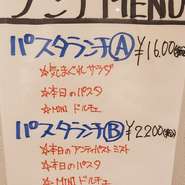 ランチMENU
パスタランチⒶ ¥1600(税込)
☆気まぐれサラダ
☆本日のパスタ
☆MINI ドルチェ
パスタランチⒷ ¥2200(税込)
☆本日のアンティパストミスト
☆本日のパスタ
☆MINI ドルチェ